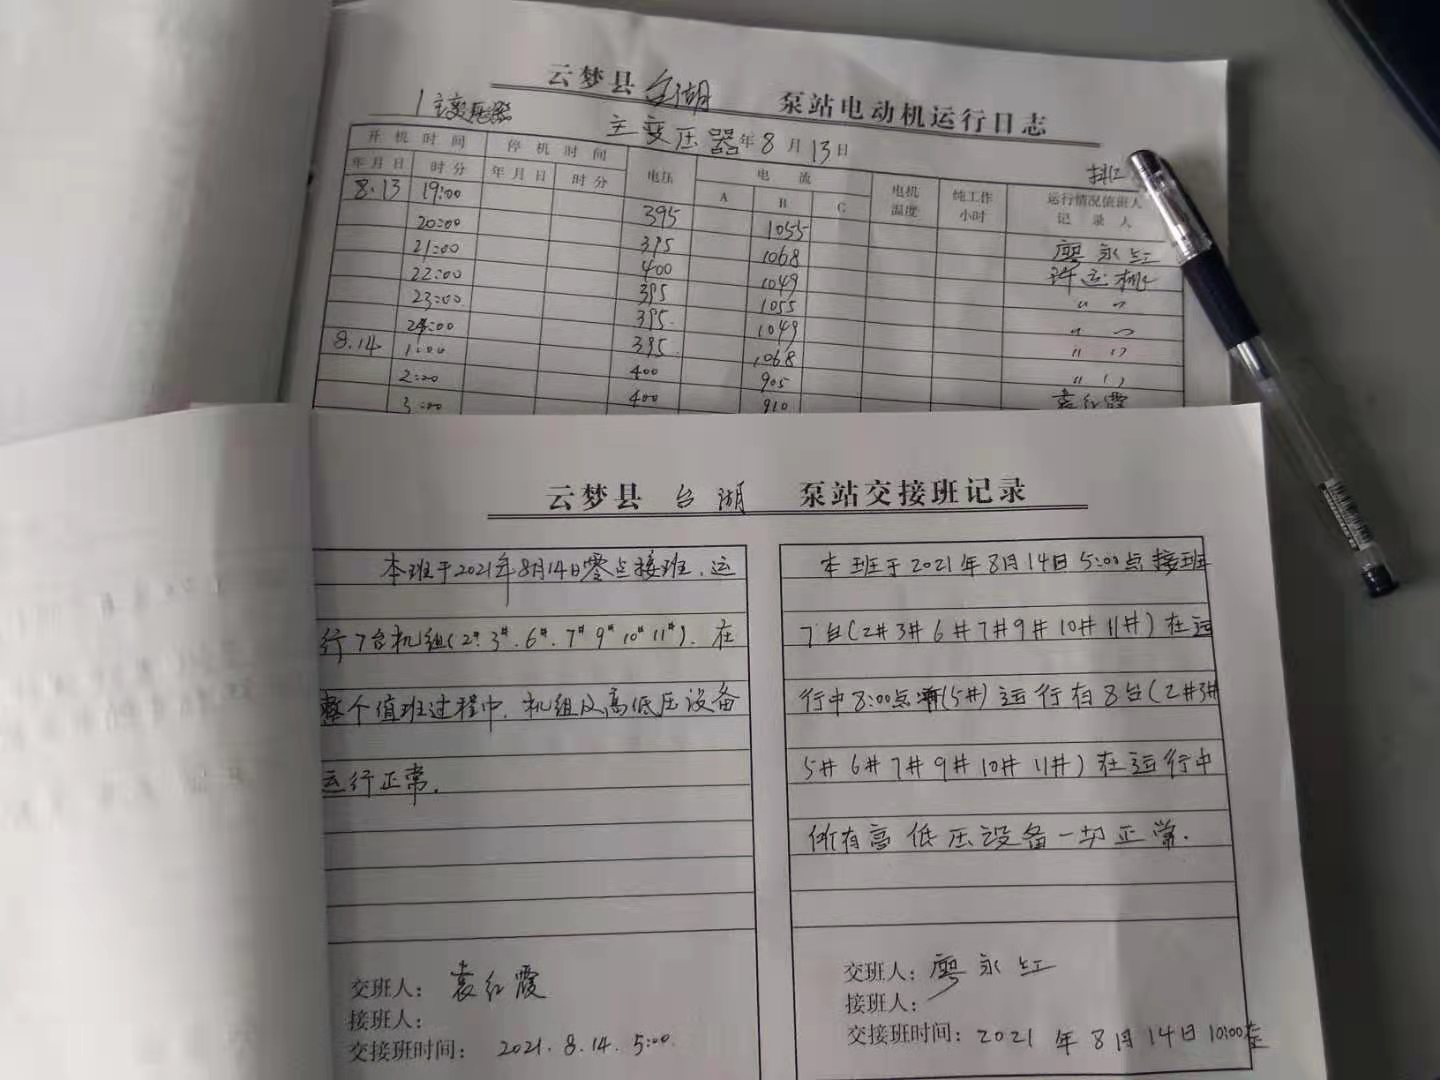 云梦县 台湖 泵站电动机运行日志
1主变压器 主变压器 年8月13日
开机时间 停机时间 电压 电流 电机温度 纯工作小时 运行情况值班人记录人
年月日 时分 年月日 时分 A B C
8.13 19:00 395 1055 廖永红
20:00 395 1068 许运桃
21:00 400 1049 〃 〃
22:00 395 1055 〃 〃
23:00 395 1049 〃 〃
24:00 395 1068 〃 〃
8.14 1:00 400 905 袁红霞
2:00 400 910
3:00
云梦县 台湖 泵站交接班记录
本班于2021年8月14日零点接班、运
行7台机组(2# 3#.6#.7# 9# 10# 11#). 在
整个值班过程中,机组及高低压设备
运行正常.
交班人: 袁红霞
接班人:
交接班时间: 2021.8.14. 5:00
本班于2021年8月14日5:00点接班
7台(2# 3# 6# 7# 9# 10# 11#)在运
行中8:00点(5#)运行有8台(2#3#
5# 6# 7# 9# 10# 11#)在运行中
所有高低压设备一切正常.
交班人: 廖永红
接班人:
交接班时间: 2021年8月14日10:00